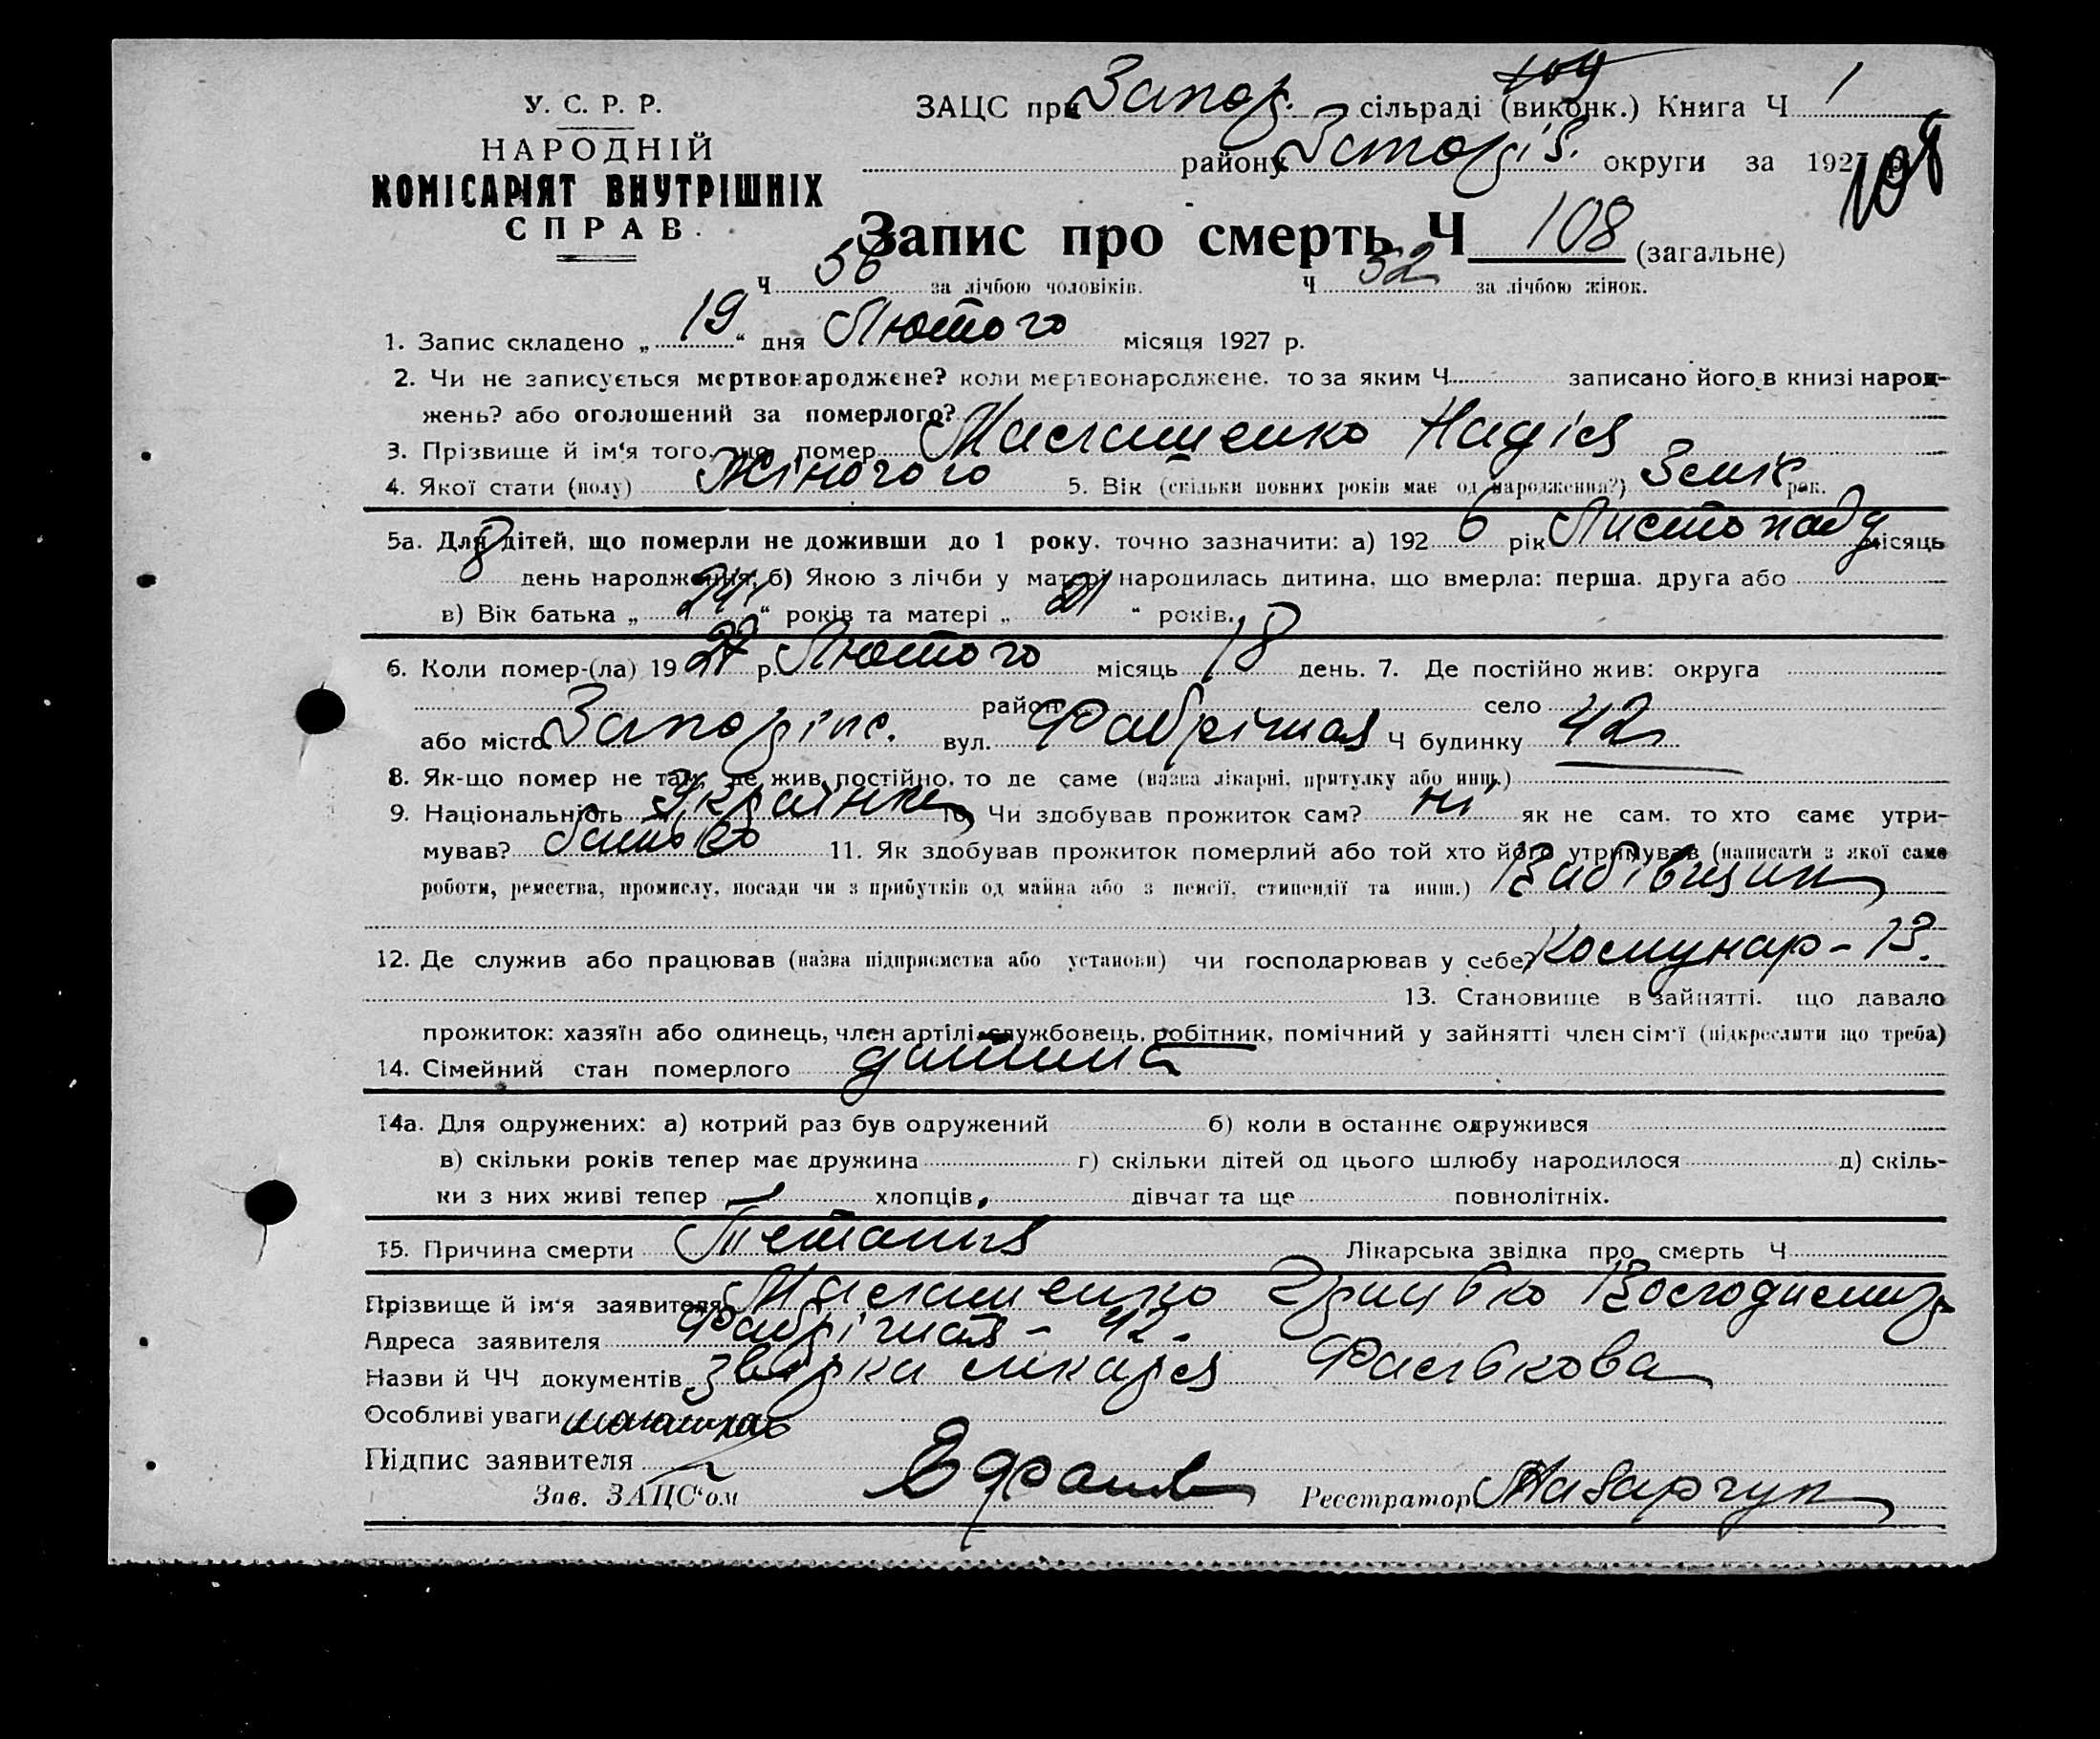 У. С. Р. Р.
НАРОДНІЙ
КОМІСАРІЯТ ВНУТРІШНІХ
СПРАВ.
104
ЗАЦС при Запор. сільраді (виконк.) Книга Ч 1
району Запоріз. округи за 1927 р.
108
Запис про смерть Ч 108 (загальне)
Ч 56 за лічбою чоловіків. Ч 52 за лічбою жінок.
1. Запис складено „ 19 “ дня Лютого місяця 1927 р.
2. Чи не записується мертвонароджене? коли мертвонароджене, то за яким Ч записано його в книзі народ-
жень? або оголошений за померлого?
3. Прізвище й ім‘я того, що помер Надія
4. Якої стати (полу) Жіночого 5. Вік (скільки повних років має од народження?) 3 міс рок.
5а. Для дітей, що померли не доживши до 1 року, точно зазначити: а) 192 6 рік Листопад місяць
8 день народження; б) Якою з лічби у матері народилась дитина, що вмерла: перша, друга або
в) Вік батька „ 24 “ років та матері „ 21 “ років.
6. Коли помер-(ла) 19 27 р. Лютого місяць 18 день. 7. Де постійно жив: округа
район село
або місто Запоріж. вул. Фабрічная Ч будинку 42
8. Як-що помер не там, де жив постійно, то де саме (назва лікарні, притулку або инш.)
9. Національність Українка 10. Чи здобував прожиток сам? ні як не сам, то хто саме утри-
мував? батько 11. Як здобував прожиток померлий або той хто його утримував (написати з якої саме
роботи, ремества, промислу, посади чи з прибутків од майна або з пенсії, стипендії та инш.)
12. Де служив або працював (назва підприємства або установи) чи господарював у себе? Комунар-
13. Становище в зайнятті, що давало
прожиток: хазяїн або одинець, член артілі, службовець, робітник, помічний у зайнятті член сім‘ї (підкреслити що треба)
14. Сімейний стан померлого дитина
14а. Для одружених: а) котрий раз був одружений б) коли в останнє одружився
в) скільки років тепер має дружина г) скільки дітей од цього шлюбу народилося д) скіль-
ки з них живі тепер хлопців, дівчат та ще повнолітніх.
15. Причина смерти Тетания Лікарська звідка про смерть Ч
Прізвище й ім‘я заявителя Грицько
Адреса заявителя Фабрічная - 42.
Назви й ЧЧ документів лікаря Фалькова
Особливі уваги
Підпис заявителя
Зав. ЗАЦС‘ом Реєстратор Назарчук